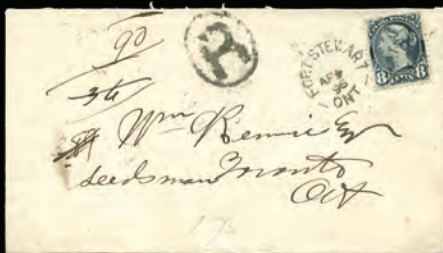 90
36
R
FORT STEWART
AP 4
98
ONT
8 CENTS 8
Wm Rennie Esq
Seedsman Toronto
Ont